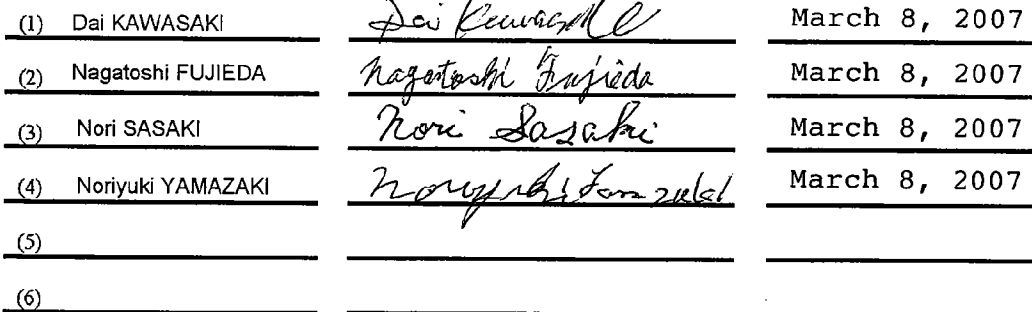 (1) Dai KAWASAKI Dai Kawasaki March 8, 2007
(2) Nagatoshi FUJIEDA Nagatoshi Fujieda March 8, 2007
(3) Nori SASAKI Nori Sasaki March 8, 2007
(4) Noriyuki YAMAZAKI Noriyuki Yamazaki March 8, 2007
(5)
(6)